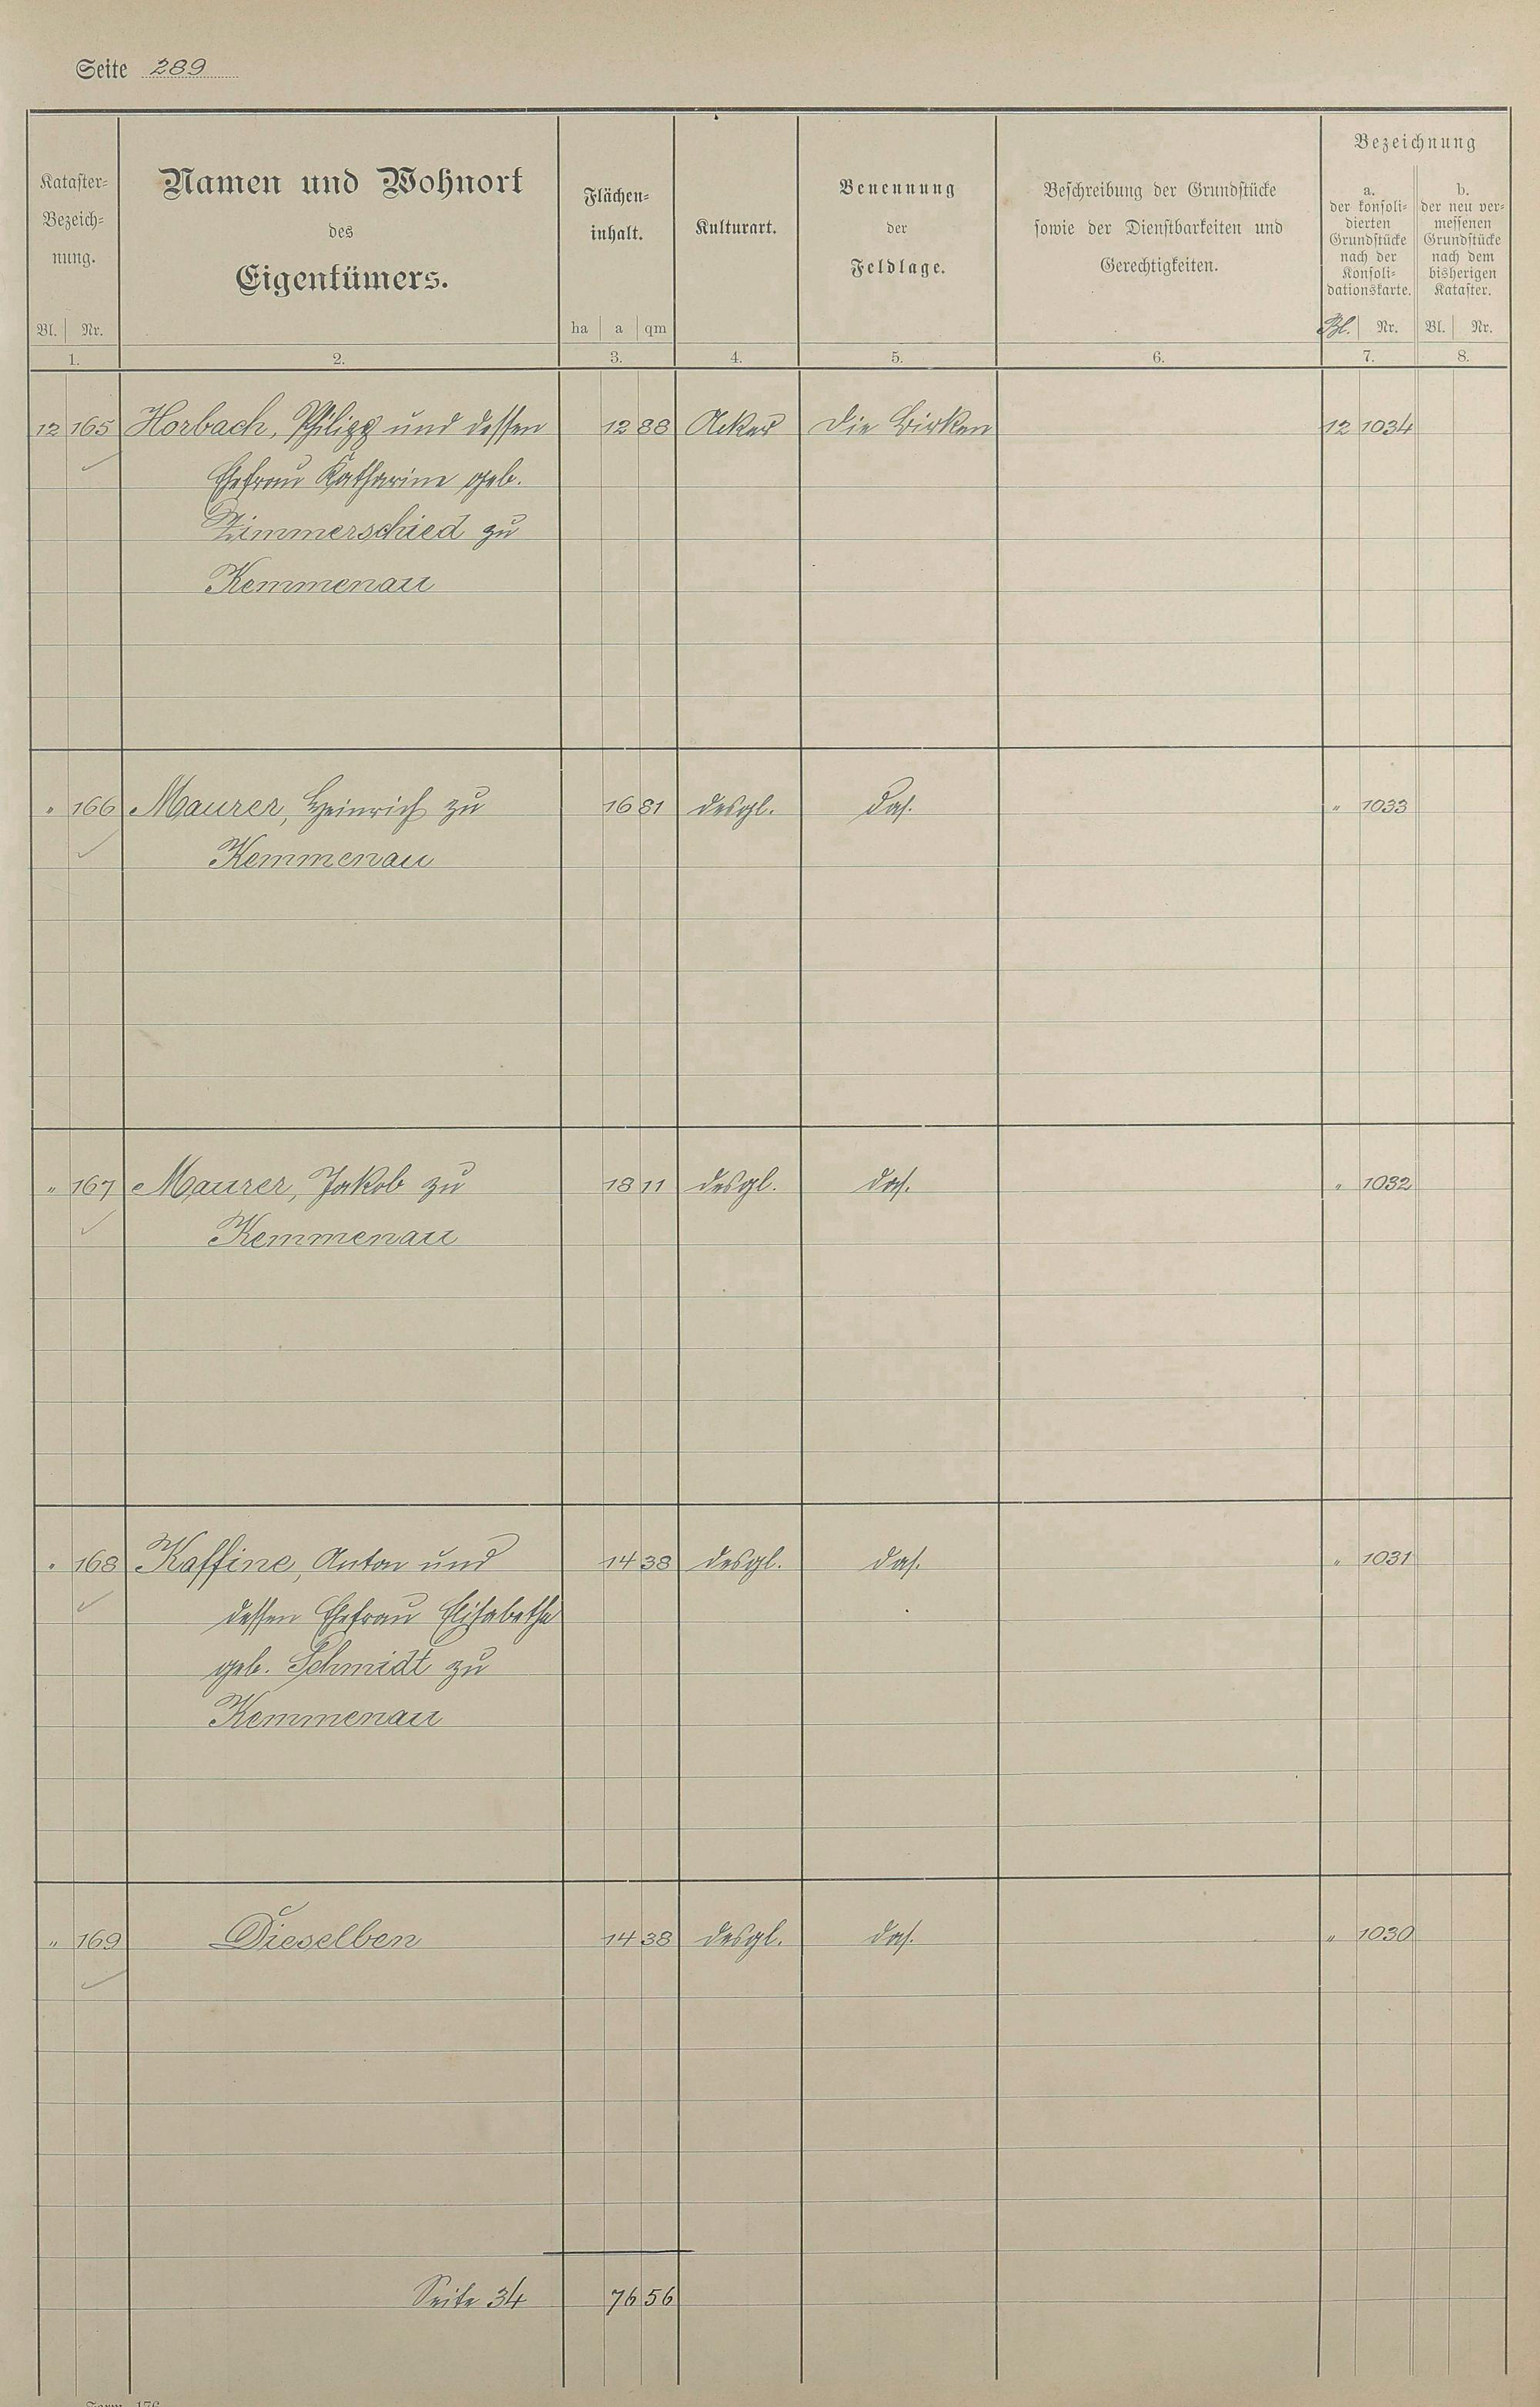 Seite 289
Kataster-
Bezeich-
nung.
Bl. Nr.
1.
Namen und Wohnort
des
Eigentümers.
2.
Flächen-
inhalt.
ha a qm
3.
Kulturart.
4.
Benennung
der
Feldlage.
5.
Beschreibung der Grundstücke
sowie der Dienstbarkeiten und
Gerechtigkeiten.
6.
Bezeichnung
a.
der konsoli-
dierten
Grundstücke
nach der
Konsoli-
dationskarte.
Bl. Nr.
7.
b.
der neu ver-
messenen
Grundstücke
nach dem
bisherigen
Kataster.
Bl. Nr.
8.
12 165 Horbach, Philipp und dessen 12 88 Acker Die Birken 12 1034
Ehefrau Katharine geb.
Zimmerschied zu
Kemmenau
" 166 Maurer, Heinrich zu 16 81 desgl. das. " 1033
Kemmenau
" 167 Maurer, Jakob zu 18 11 desgl. das. " 1032
Kemmenau
" 168 Kaffine, Anton und 14 38 desgl. das. " 1031
dessen Ehefrau Elisabetha
geb. Schmidt zu
Kemmenau
" 169 Dieselben 14 38 desgl. das. " 1030
Seite 34 76 56